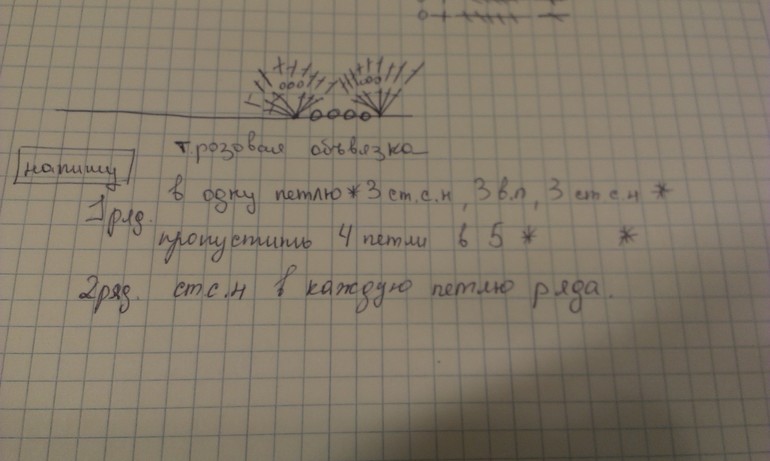 т.розовая объвязка
напишу
1 ряд. в одну петлю * 3 ст.с.н, 3 в.п, 3 ст с н *
пропустить 4 петли в 5 * *
2 ряд. ст.с.н в каждую петлю ряда.